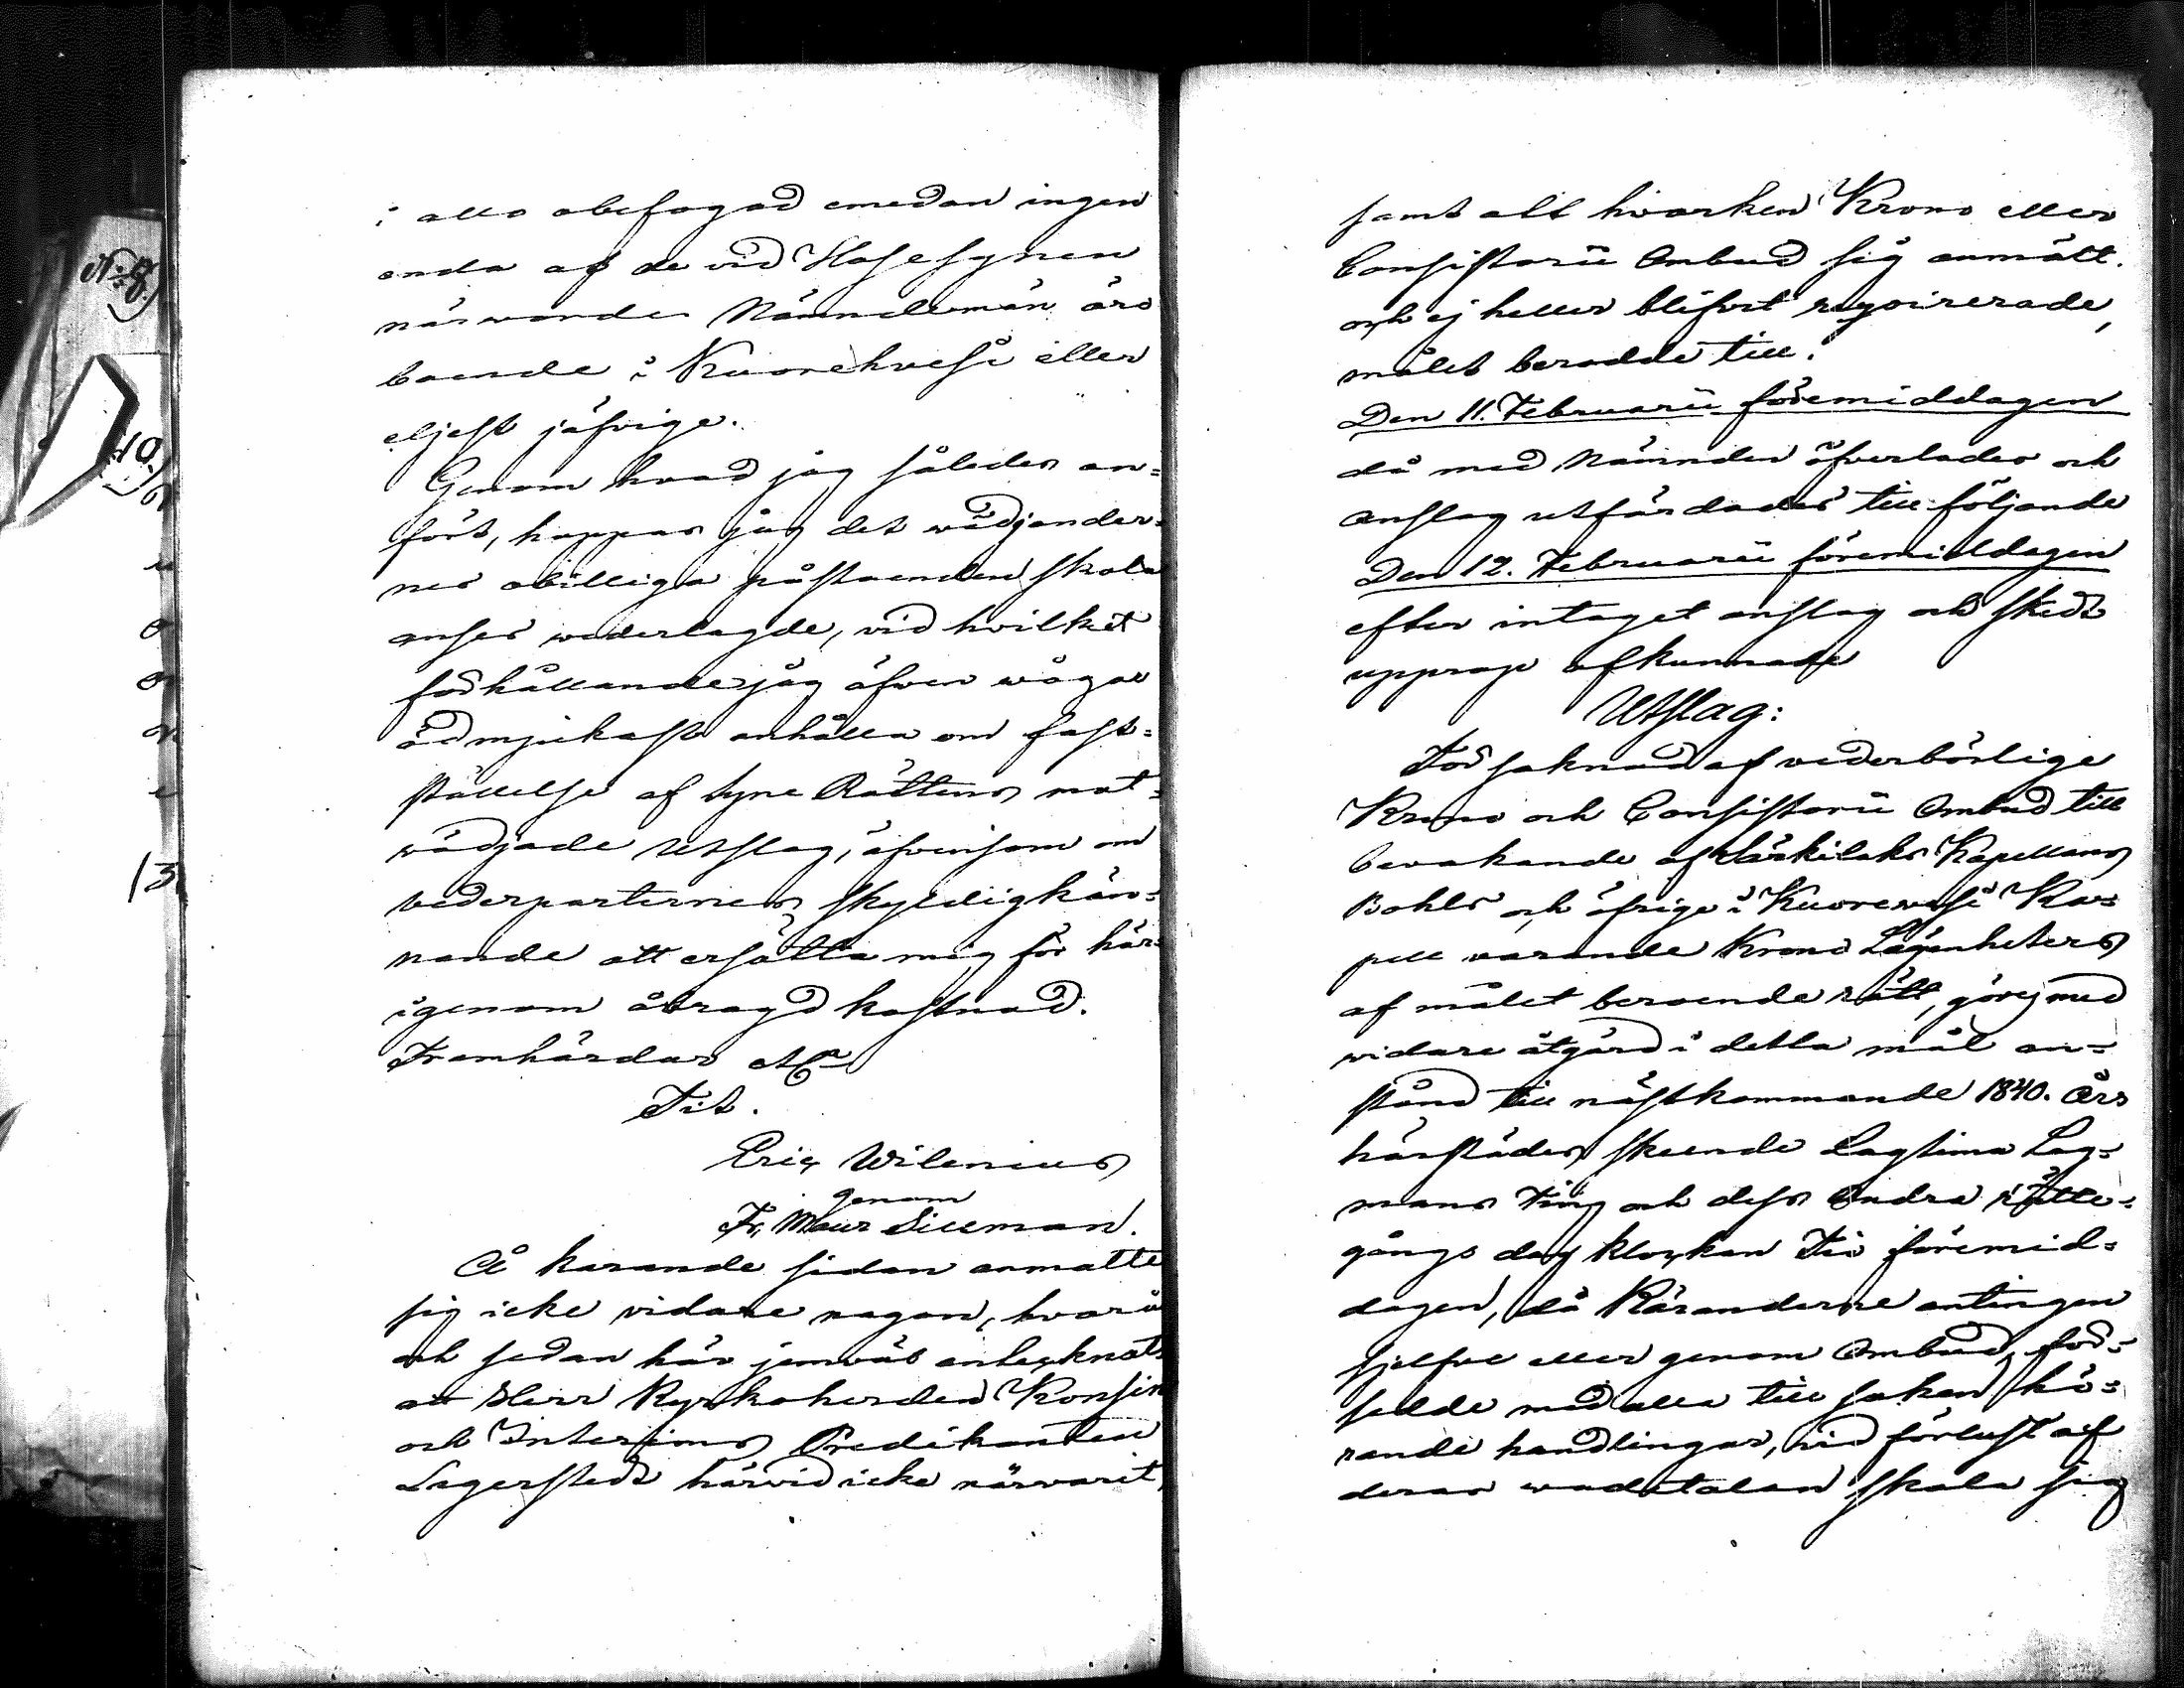 i allo obefogad emedan ingen
enda af de vid Husesynen
närwarande Nämndemän äro
boende i Kuorehvesi eller
eljest jäfvige.
Genom hvad jag således an=
fört, hoppas jag det wädjander=
nes obilliga påståenden skola
anses wederlagde, vid hvilket
förhållande jag äfven wågar
ödmjukast anhålla om fast=
ställelse af Syne Rättens mot=
wädjade Utslag, äfvensom om
vederparternes skyldigkän=
nande att ersätta mig för här=
igenom ådragd kostnad.
Framhärdar etc
Tit.
Eric Wilenius
genom
Fr, Maur Silleman.
Å karande sidan anmälte
sig icke vidare nagon, hvarå
och sedan här jemväl antecknats
att Herr Kyrkoherden Konsin
och Interims Predikanten
Lagerstedt härvid icke närvarit,
samt att hvarken Krono eller
Consistorii Ombud sig anmält.
och ej heller blifvit reqvirerade,
målet berodde till.
Den 11. Februarii föremiddagen
då med Nämnden öfverlades och
anslag utfärdades till följande
Den 12. Februarii föremiddagen
efter intaget anslag och skedt
upprop afkunnade
Utslag:
För saknad af vederbörlige
Krono och Consistorii Ombud till
bevakande af Särkilaks Kapellans
Bohls och öfrige i Kuorewesi Ka=
pell warande Krono Lägenheters
af målet beroende rätt, göres med
widare åtgärd i detta mål an=
stånd till nästkommande 1840. Års
härstädes skeende Lagtima Lag=
mans Ting och dess Andra rätte=
gångs dag klockan Tio föremid=
dagen, då Käranderne antingen
sjelfve eller genom Ombud, för=
sedde med alla till saken hö=
rande handlingar, vid förlust af
deras wadetalan skola sig